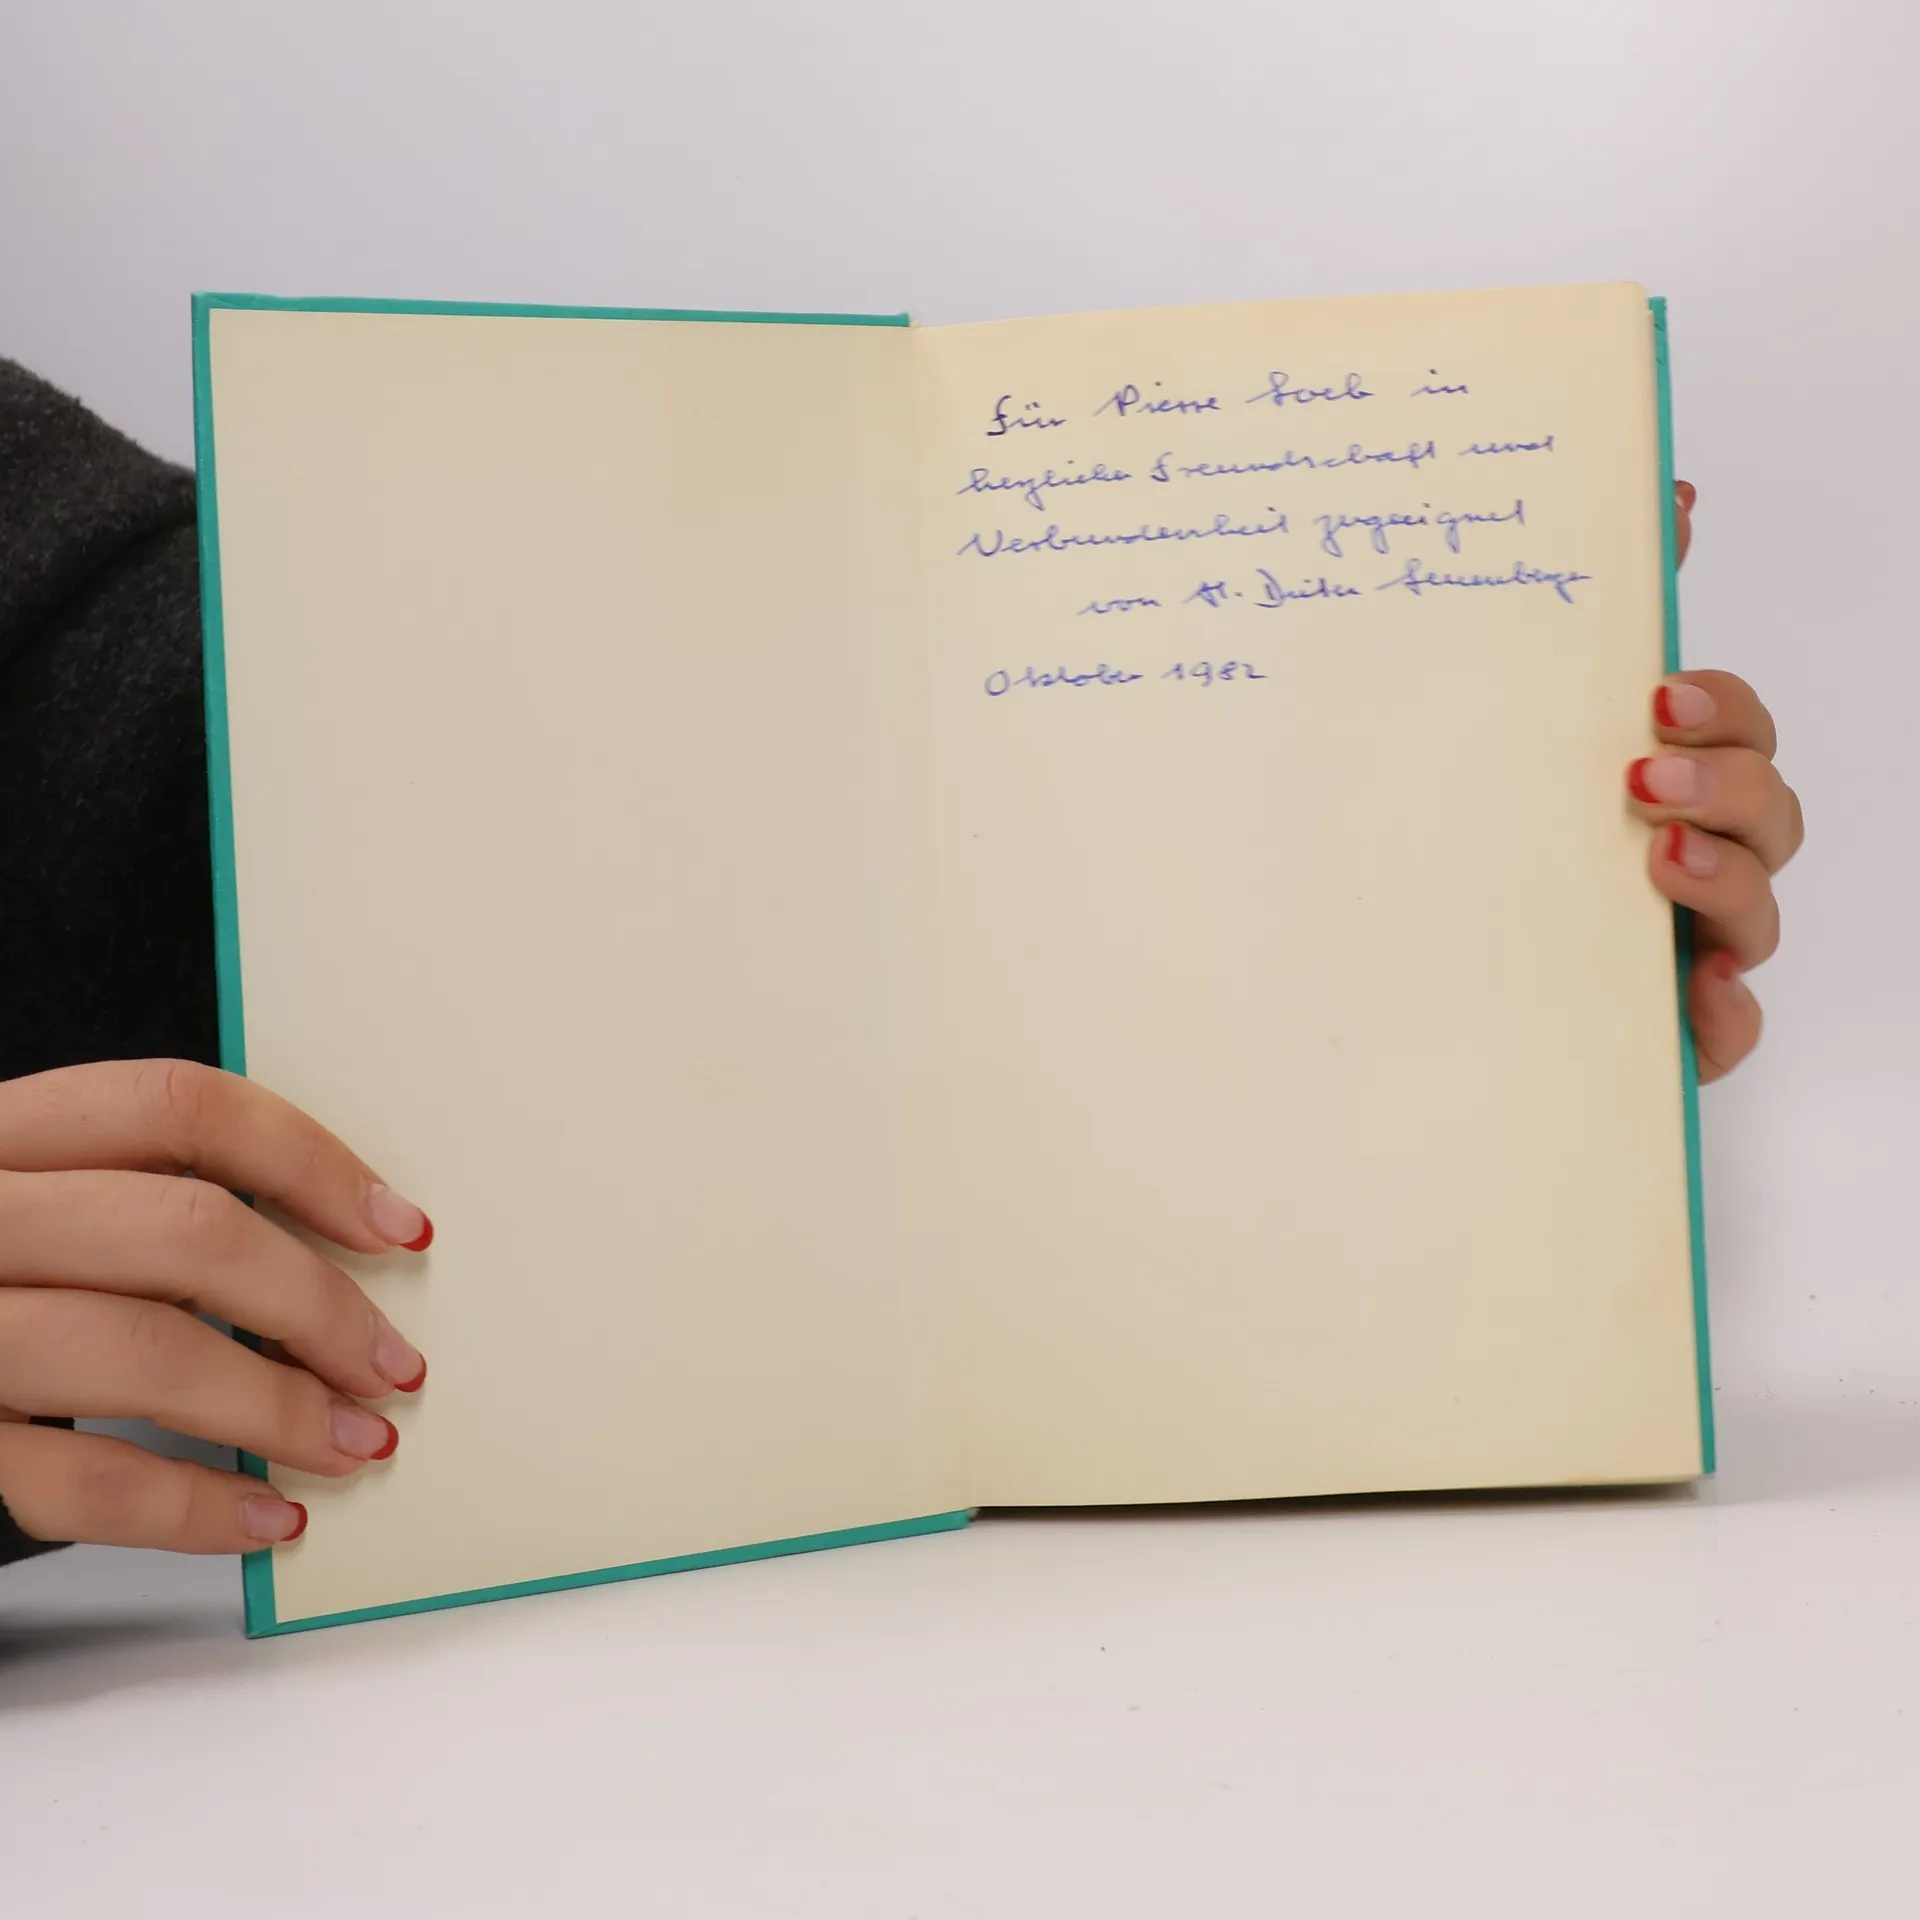 Für Pierre Loeb in
herzlicher Freundschaft und
Verbundenheit zugeeignet
von H. Dieter Leuenberger
Oktober 1982